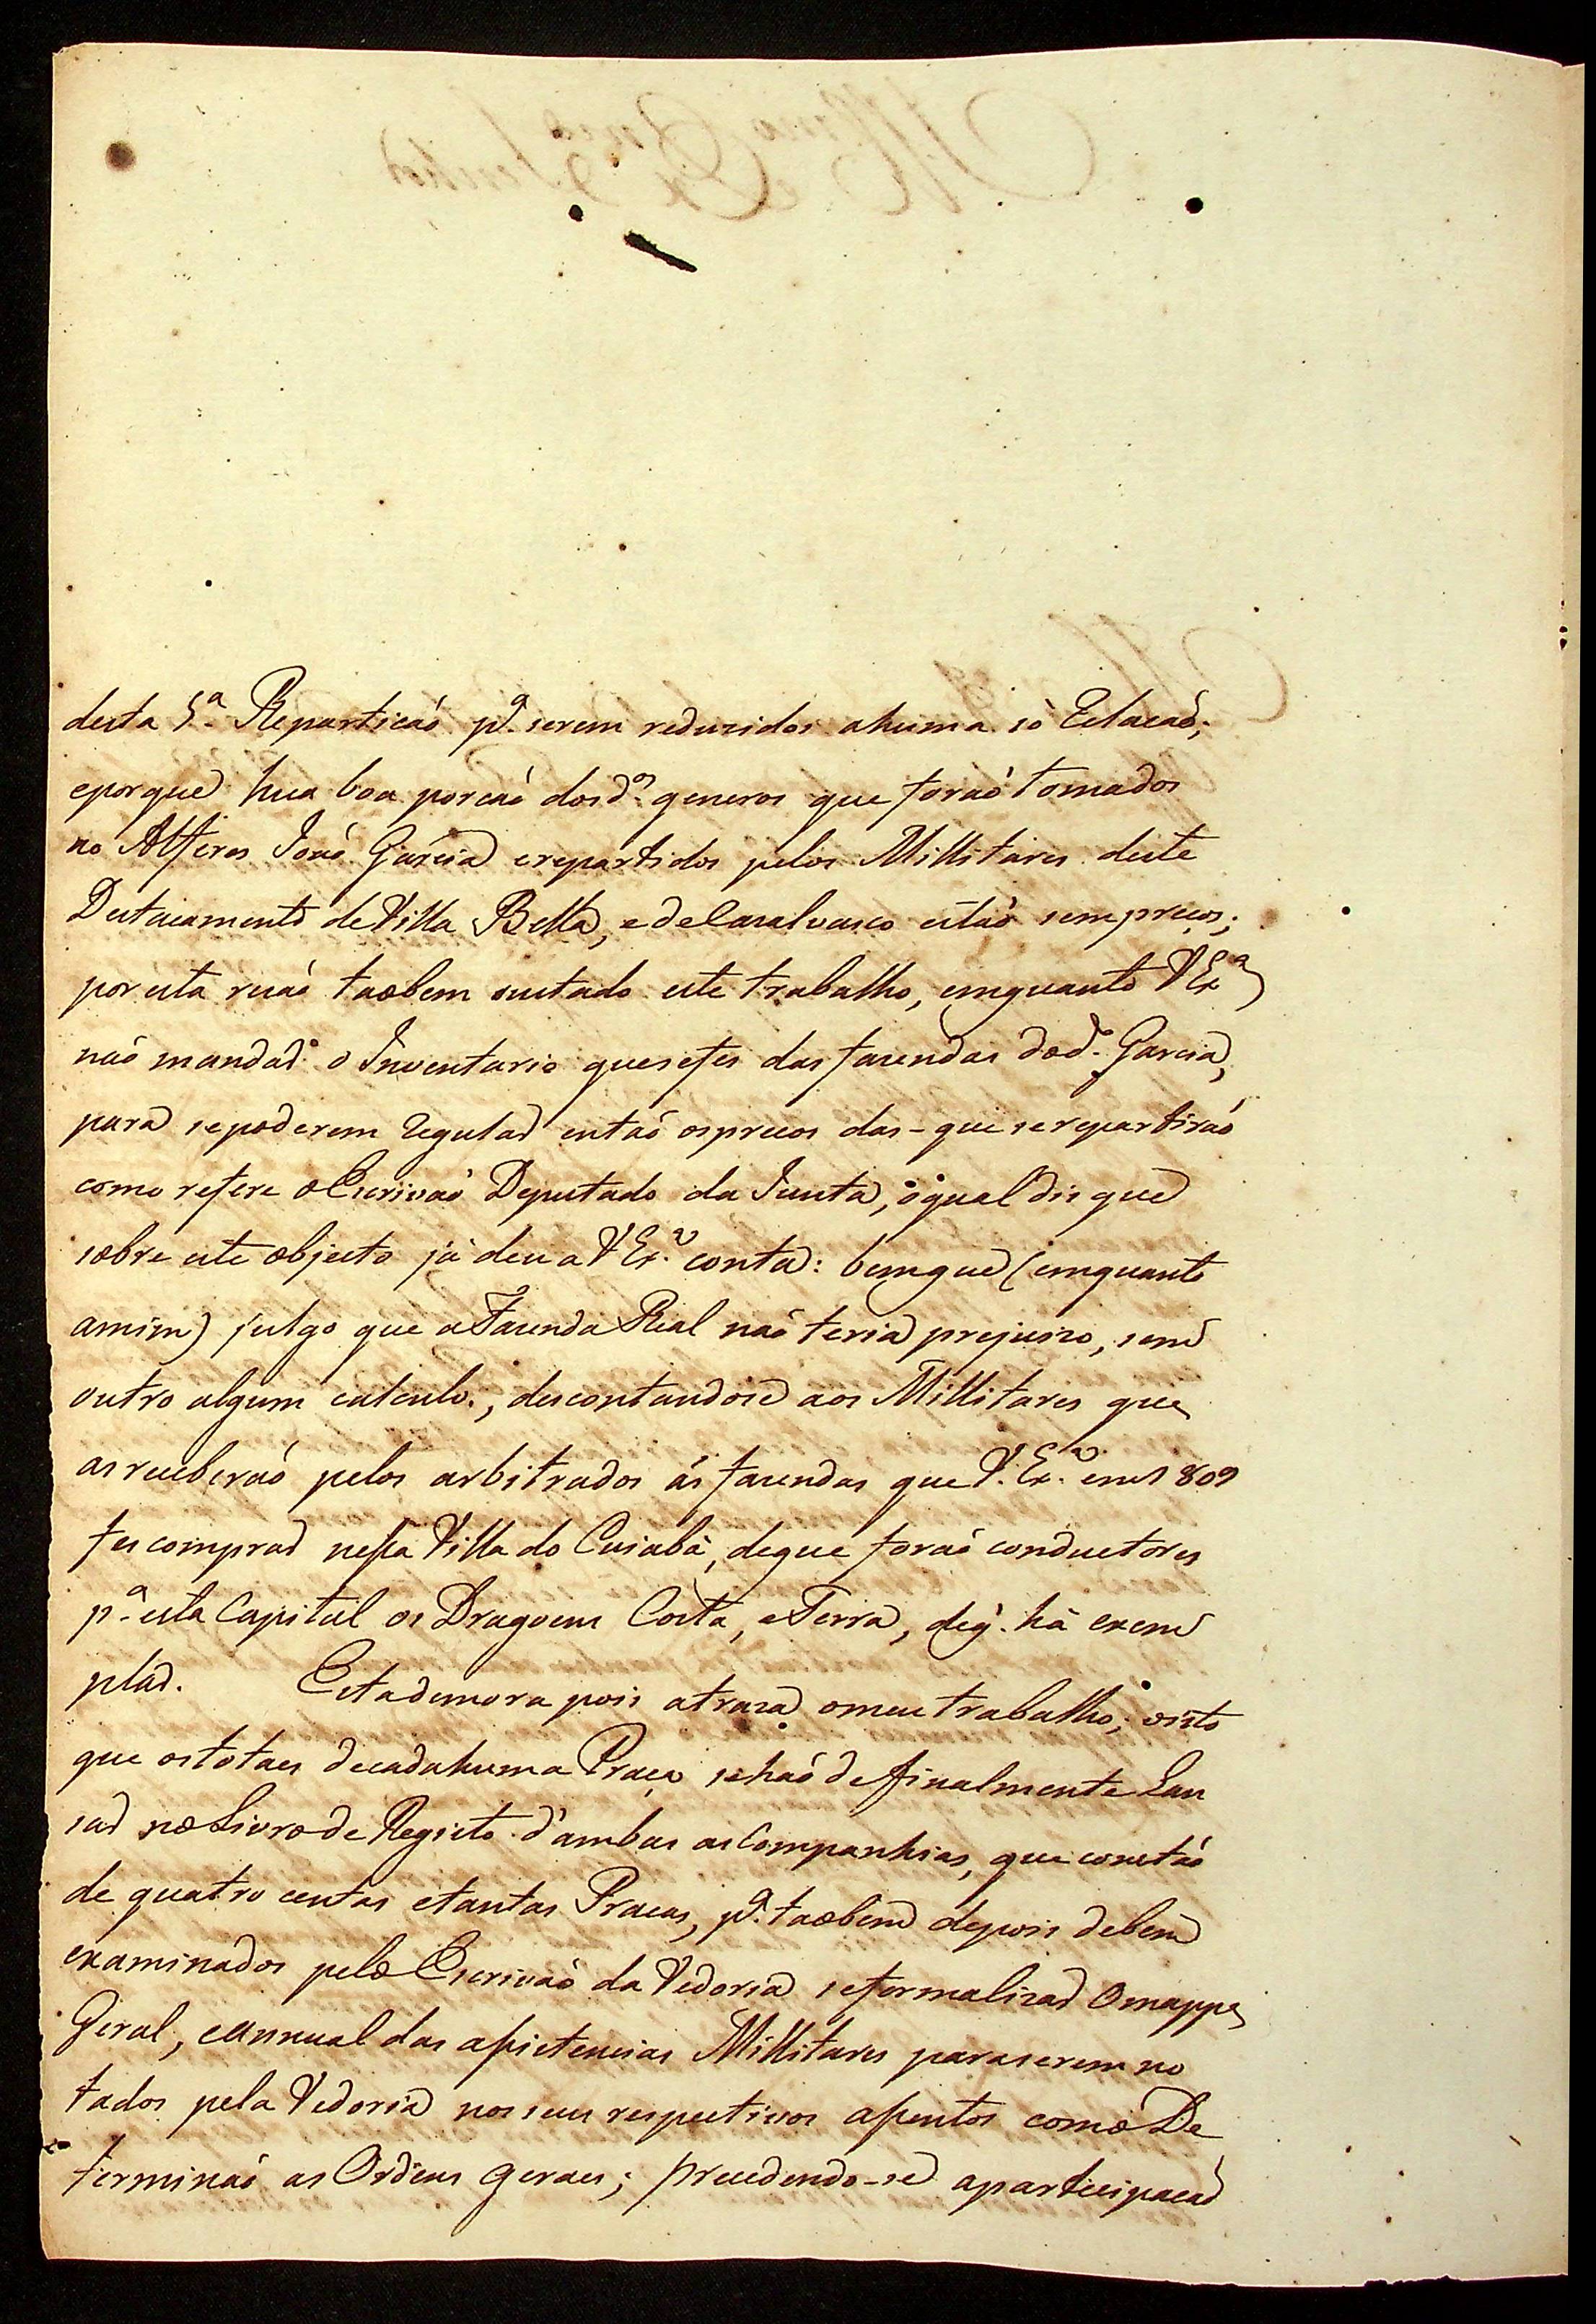 desta 5.ª Repartição p.ª serem reduzidos ahuma só Relacaõ;
eporque hua boa porcaõ dosd.ᵒˢ generos que foraõ tomados
ao Alferes Joaõ Garcia erepartidos pelos Millitares deste
Destacamento de Villa Bella, e de Casalvasco estaõ sem precos;
por esta rezaõ taobem sustado este trabalho, emquanto VEx.ª
naõ mandar o Inventario quesefes das fazendas dod.º Garcia,
para sepoderem Regular entaõ osprecos das-que serepartiraõ
como refere oEscrivaõ Deputado da Junta, oqual dis que
sobre este objecto já deu a VEx.ª conta: bemque (emquanto
amim) julgo que aFazenda Real naõ teria prejuizo, sem
outro algum calculo, descontandose aos Millitares que
asreceberaõ pelos arbitrados ás fazendas que V. Ex.ª em 1809
fes comprar nessa Villa do Cuiabá, deque foraõ conductores
p.ª esta Capital os Dragoens Costa, eTerra, deq̃. há exem
plar. Esta demora pois atraza omeu trabalho; visto
que ostotaes decadahuma Praça sehaõ definalmente Lan
sar no Livro de Registo d'ambas as Companhias, que constaõ
de quatro centas etantas Pracas, p.ª taobem depois debem
examinados pelo Escrivaõ da Vedoria seformalizar Omappa
Geral, eAnnual das assistencias Millitares paraserem no
tados pela Vedoria nos seus respectivos assentos como De
terminaõ as Ordens geraes; precedendo-se aparticipacaõ